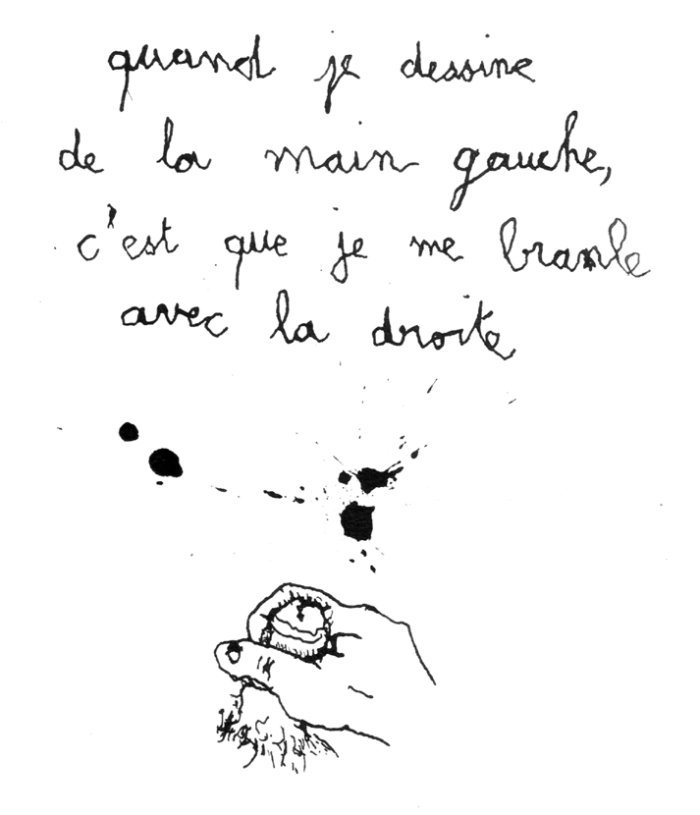 quand je dessine
de la main gauche,
c'est que je me branle
avec la droite